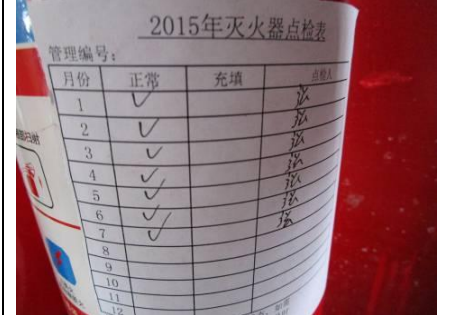 2015年灭火器点检表
管理编号:
月份 正常 充填 点检人
1 ✓ 张
2 ✓ 张
3 ✓ 张
4 ✓ 张
5 ✓ 张
6 ✓ 张
7 ✓ 张
8
9
10
11
12